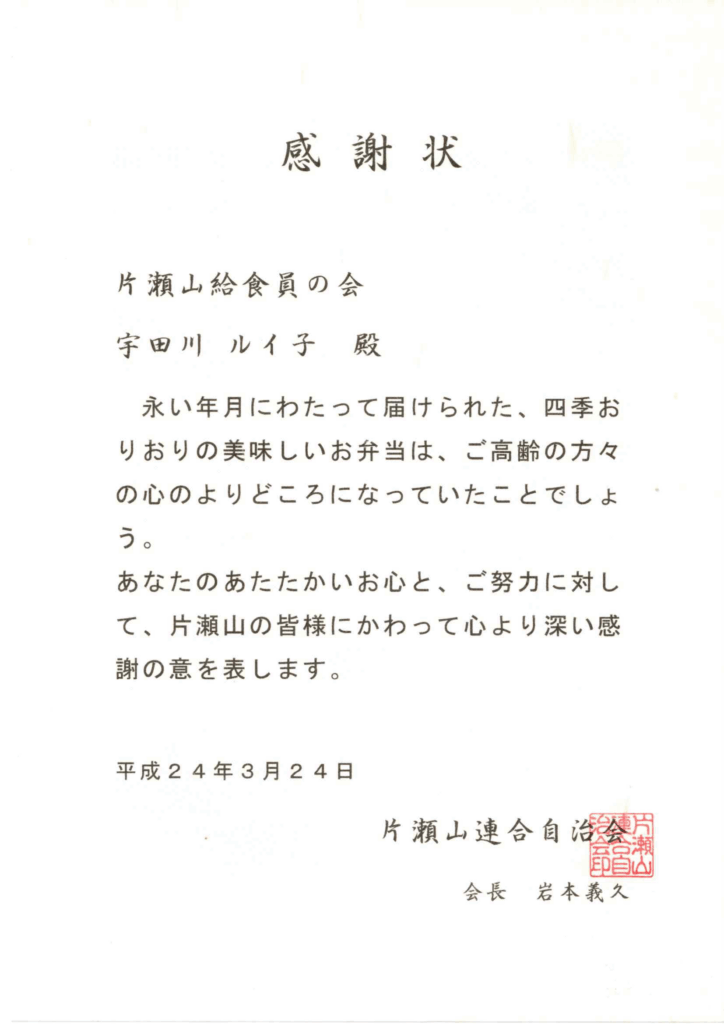 感謝状
片瀬山給食員の会
宇田川 ルイ子　殿
　永い年月にわたって届けられた、四季お
りおりの美味しいお弁当は、ご高齢の方々
の心のよりどころになっていたことでしょ
う。
あなたのあたたかいお心と、ご努力に対し
て、片瀬山の皆様にかわって心より深い感
謝の意を表します。
平成２４年３月２４日
片瀬山連合自治会
会長　岩本義久
片瀬山
連合自
治会印